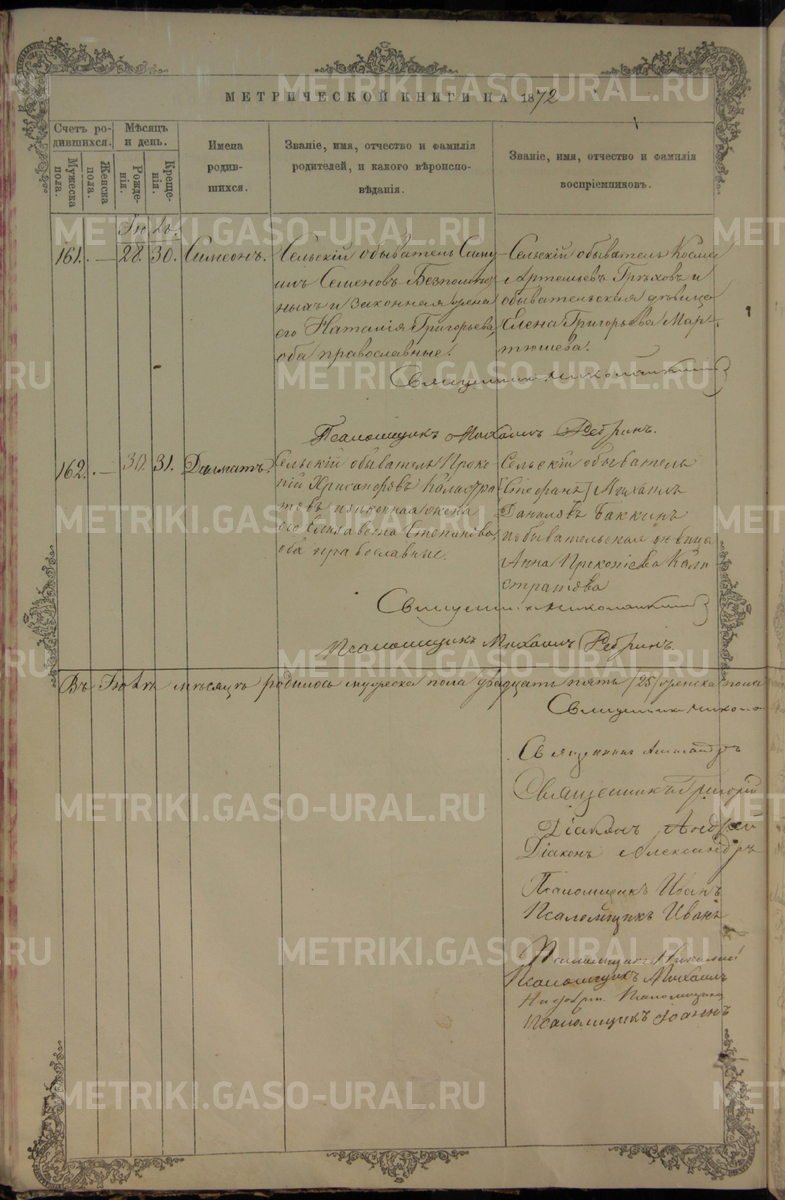 МЕТРИЧЕСКОЙ КНИГИ НА 1872
Счетъ родившихся.
Мужеска пола.
Женска пола.
Мѣсяцъ и день.
Рожденія.
Крещенія.
Имена родившихся.
Званіе, имя, отчество и фамилія
родителей, и какого вѣроисповѣданія.
Званіе, имя, отчество и фамилія
воспріемниковъ.
161. — 28. 30. Симеонъ.
Сельскій обыватель
Семеновъ
и законная жена
его Наталія Григорьева,
оба православные.
Сельскій обыватель Косма
Артемьевъ Грѣховъ и
обывательская дѣвица
Елена Григорьева Мар-
тюшева.
Священник
Псаломщикъ Михаилъ Ребринъ.
162. — 30. 31. Далматъ.
Сельскій обыватель Прокъ-
пій Хрисанфовъ Калистра-
товъ и законная жена
его Елизавета Степанова,
оба православные.
Сельскій обыватель
[Стефанъ] Михаилъ
Даниловъ Баккинъ
и обывательская дѣвица
Анна Прокопіева Кали-
стратова
Священник
Псаломщикъ Михаилъ Ребринъ
Въ Іюлѣ мѣсяцѣ родилось мужеска пола двадцать пять /25/ женска пола
Священник Никола
Священникъ Александръ
Священникъ Григорій
Діаконъ Андрей
Діаконъ Александръ
Псаломщикъ Иванъ
Псаломщикъ Иванъ
Псаломщикъ Николай
Псаломщикъ Михаилъ
Псаломщика
Псаломщикъ Іоаннъ
METRIKI.GASO-URAL.RU